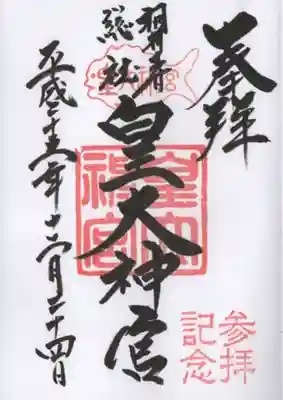 奉拝
総社
皇大神宮
平成二十五年十二月二十四日
皇大神宮
参拝
記念